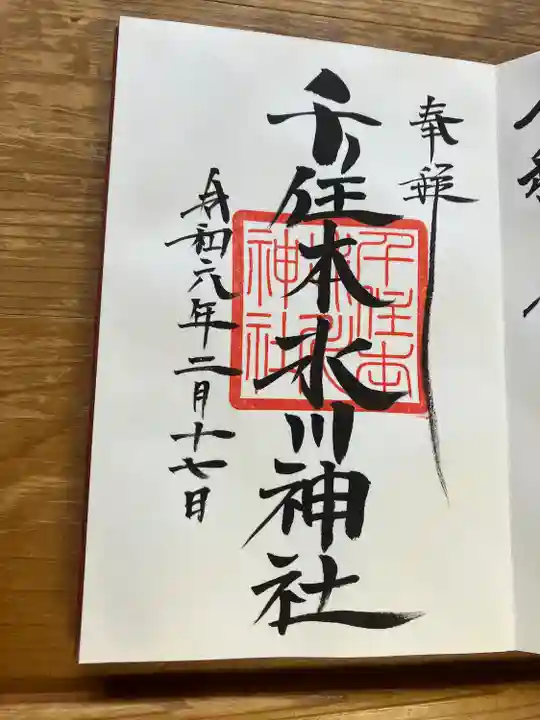 奉拝
千住本氷川神社
千住本氷川神社
令和六年二月十七日